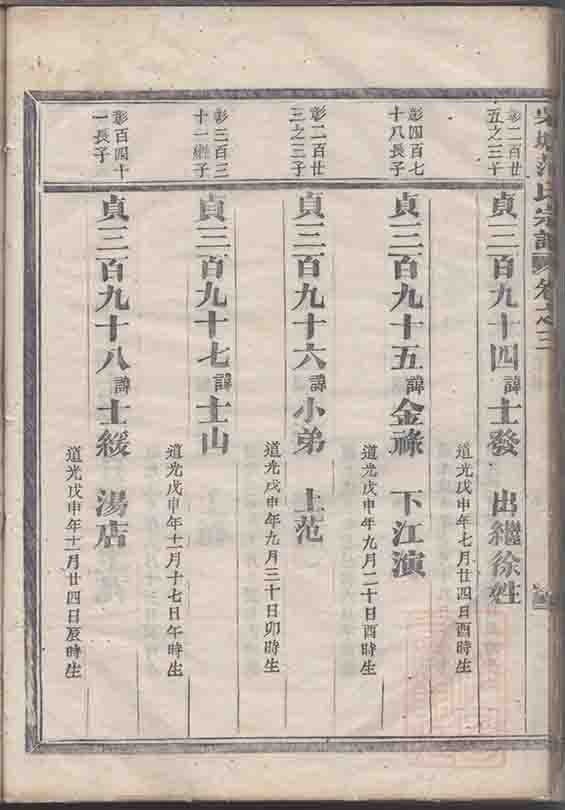 氏宗譜 卷之三
彰二百廿
五之三子
貞三百九十四諱士發 出繼徐姓
道光戊申年七月廿四日酉時生
彰四百七
十八長子
貞三百九十五諱金祿 下江演
道光戊申年九月二十日酉時生
彰二百廿
三之三子
貞三百九十六諱小弟 上范
道光戊申年九月三十日卯時生
彰三百三
十一繼子
貞三百九十七諱士山
道光戊申年十一月十七日午時生
彰百四十
一長子
貞三百九十八諱士緩 湯店
道光戊申年十一月廿四日辰時生